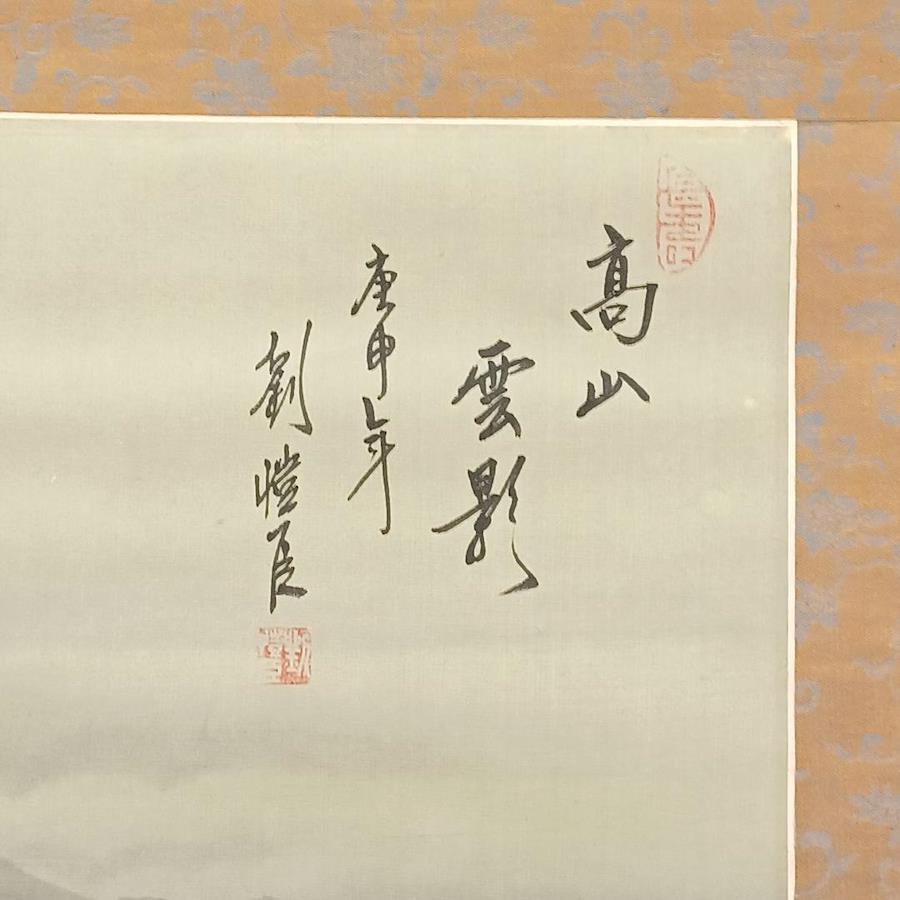 高山
雲影
庚申年
劉愷